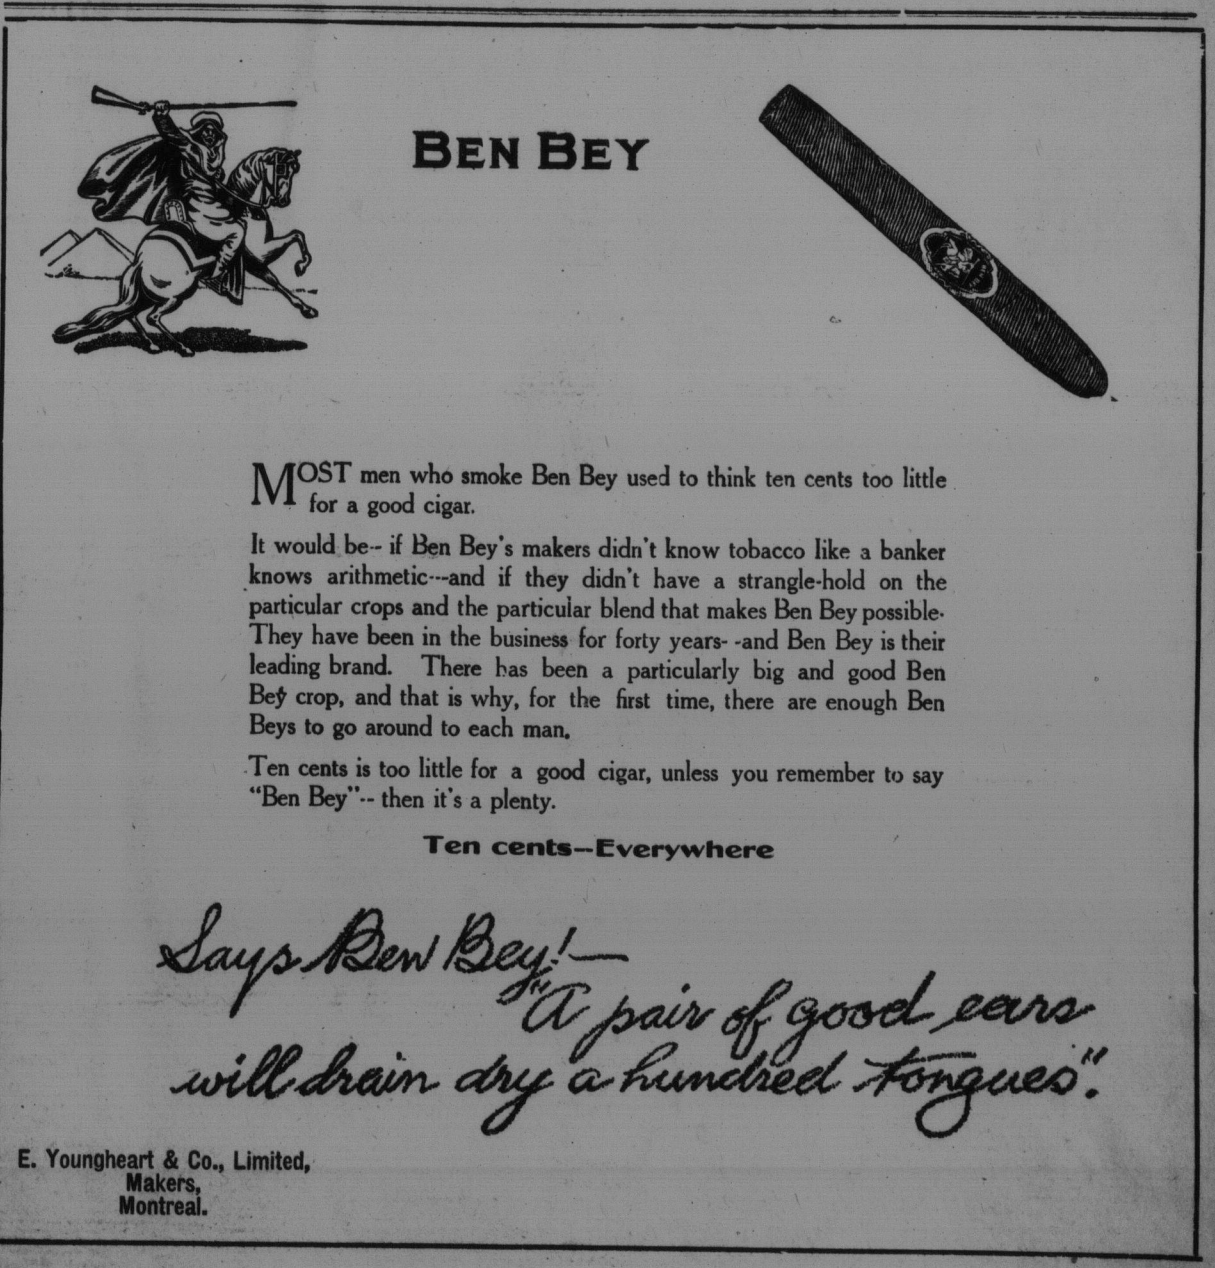 BEN BEY
MOST men who smoke Ben Bey used to think ten cents too little
for a good cigar.
It would be-- if Ben Bey's makers didn't know tobacco like a banker
knows arithmetic---and if they didn't have a strangle-hold on the
particular crops and the particular blend that makes Ben Bey possible.
They have been in the business for forty years- -and Ben Bey is their
leading brand. There has been a particularly big and good Ben
Bey crop, and that is why, for the first time, there are enough Ben
Beys to go around to each man.
Ten cents is too little for a good cigar, unless you remember to say
"Ben Bey"-- then it's a plenty.
Ten cents—Everywhere
Says Ben Bey!—
"A pair of good ears
will drain dry a hundred tongues".
E. Youngheart & Co., Limited,
Makers,
Montreal.